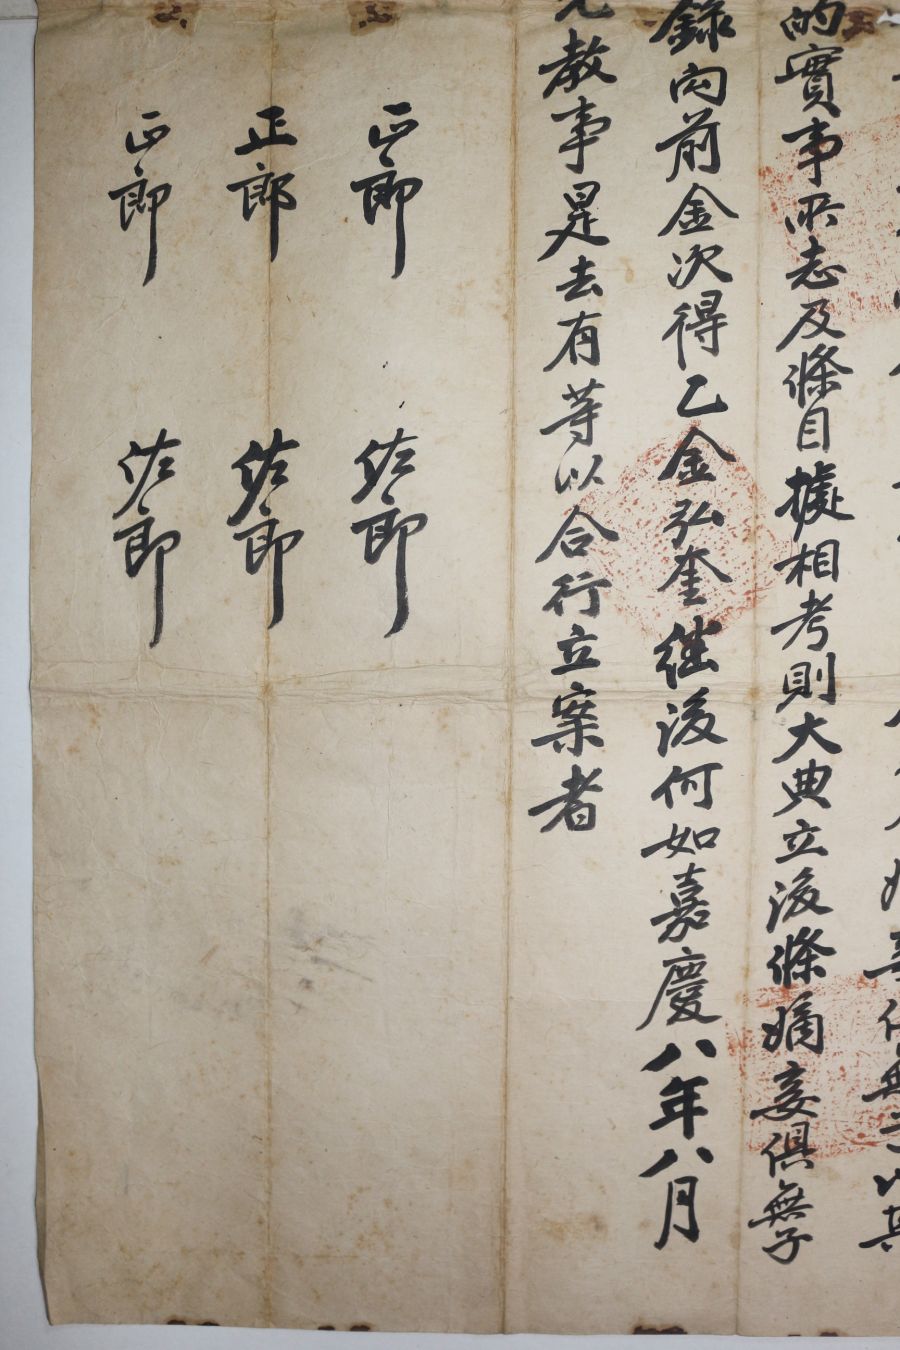 無子以其
的實事所志及條目據相考則大典立後條嫡妾俱無子
錄內前金次得乙金弘奎継後何如嘉慶八年八月
教事是去有等以合行立案者
正郎 佐郎
正郎 佐郎
正郎 佐郎